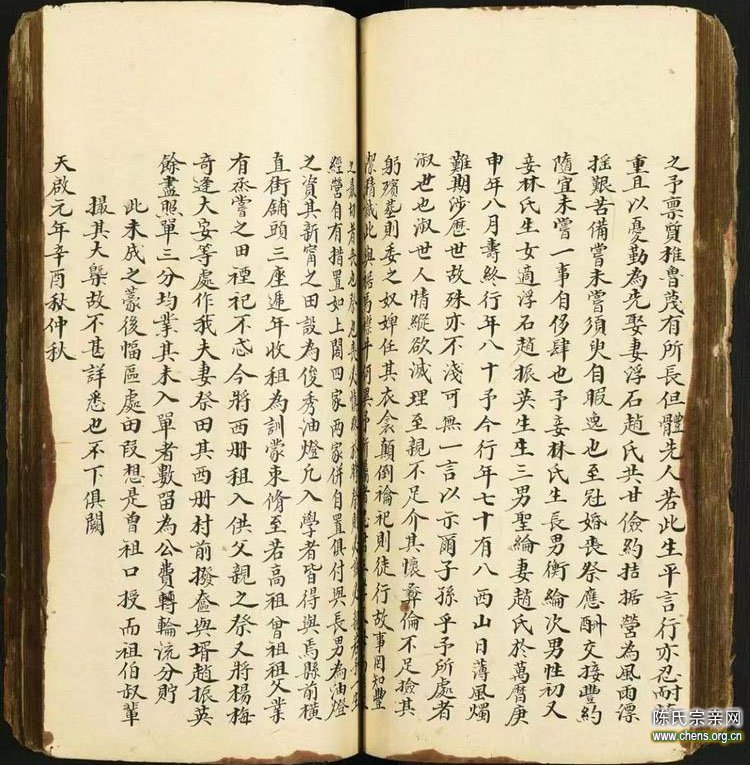 之予禀質推魯蔑有所長但體先人若此生平言行亦忍耐
重且以憂勤為先娶妻浮石趙氏共廿儉約拮据營為風雨漂
搖艱苦備嘗未嘗須臾自暇逸也至冠婚喪祭應酬交接豐約
隨宜未嘗一事自侈肆也予妾林氏生長男衡綸次男性初又
妾林氏生女適浮石趙振英生生三男聖綸妻趙氏於萬曆庚
申年八月壽終行年八十予今行年七十有八西山日薄風燭
難期涉歷世故殊亦不淺可無一言以示爾子孫乎予所處者
淑世也淑世人情縱欲滅理至親不足介其懷彝倫不足撿其
躬殯墓則委之奴婢任其衣衾顛倒禴祀則徒行故事罔知豐
經營自有措置如上閣四家兩家併自置俱付與長男為油燈
之資其新甯之田設為俊秀油燈凢入學者皆得與焉縣前橫
直街舖頭三座遞年收租為訓蒙束脩至若高祖曾祖祖父業
有烝嘗之田禋祀不忒今將西册租入供父親之祭又將楊梅
奇逢大安等處作我夫妻祭田其西册村前撥奩與壻趙振英
餘盡照單三分均業其未入單者數畱為公費轉輪流分貯
此未成之蒙後幅區處田段想是曾祖口授而祖伯叔輩
撮其大槩故不甚詳悉也不下俱闕
天啟元年辛酉秋仲秋
陈氏宗亲网
www.chens.org.cn